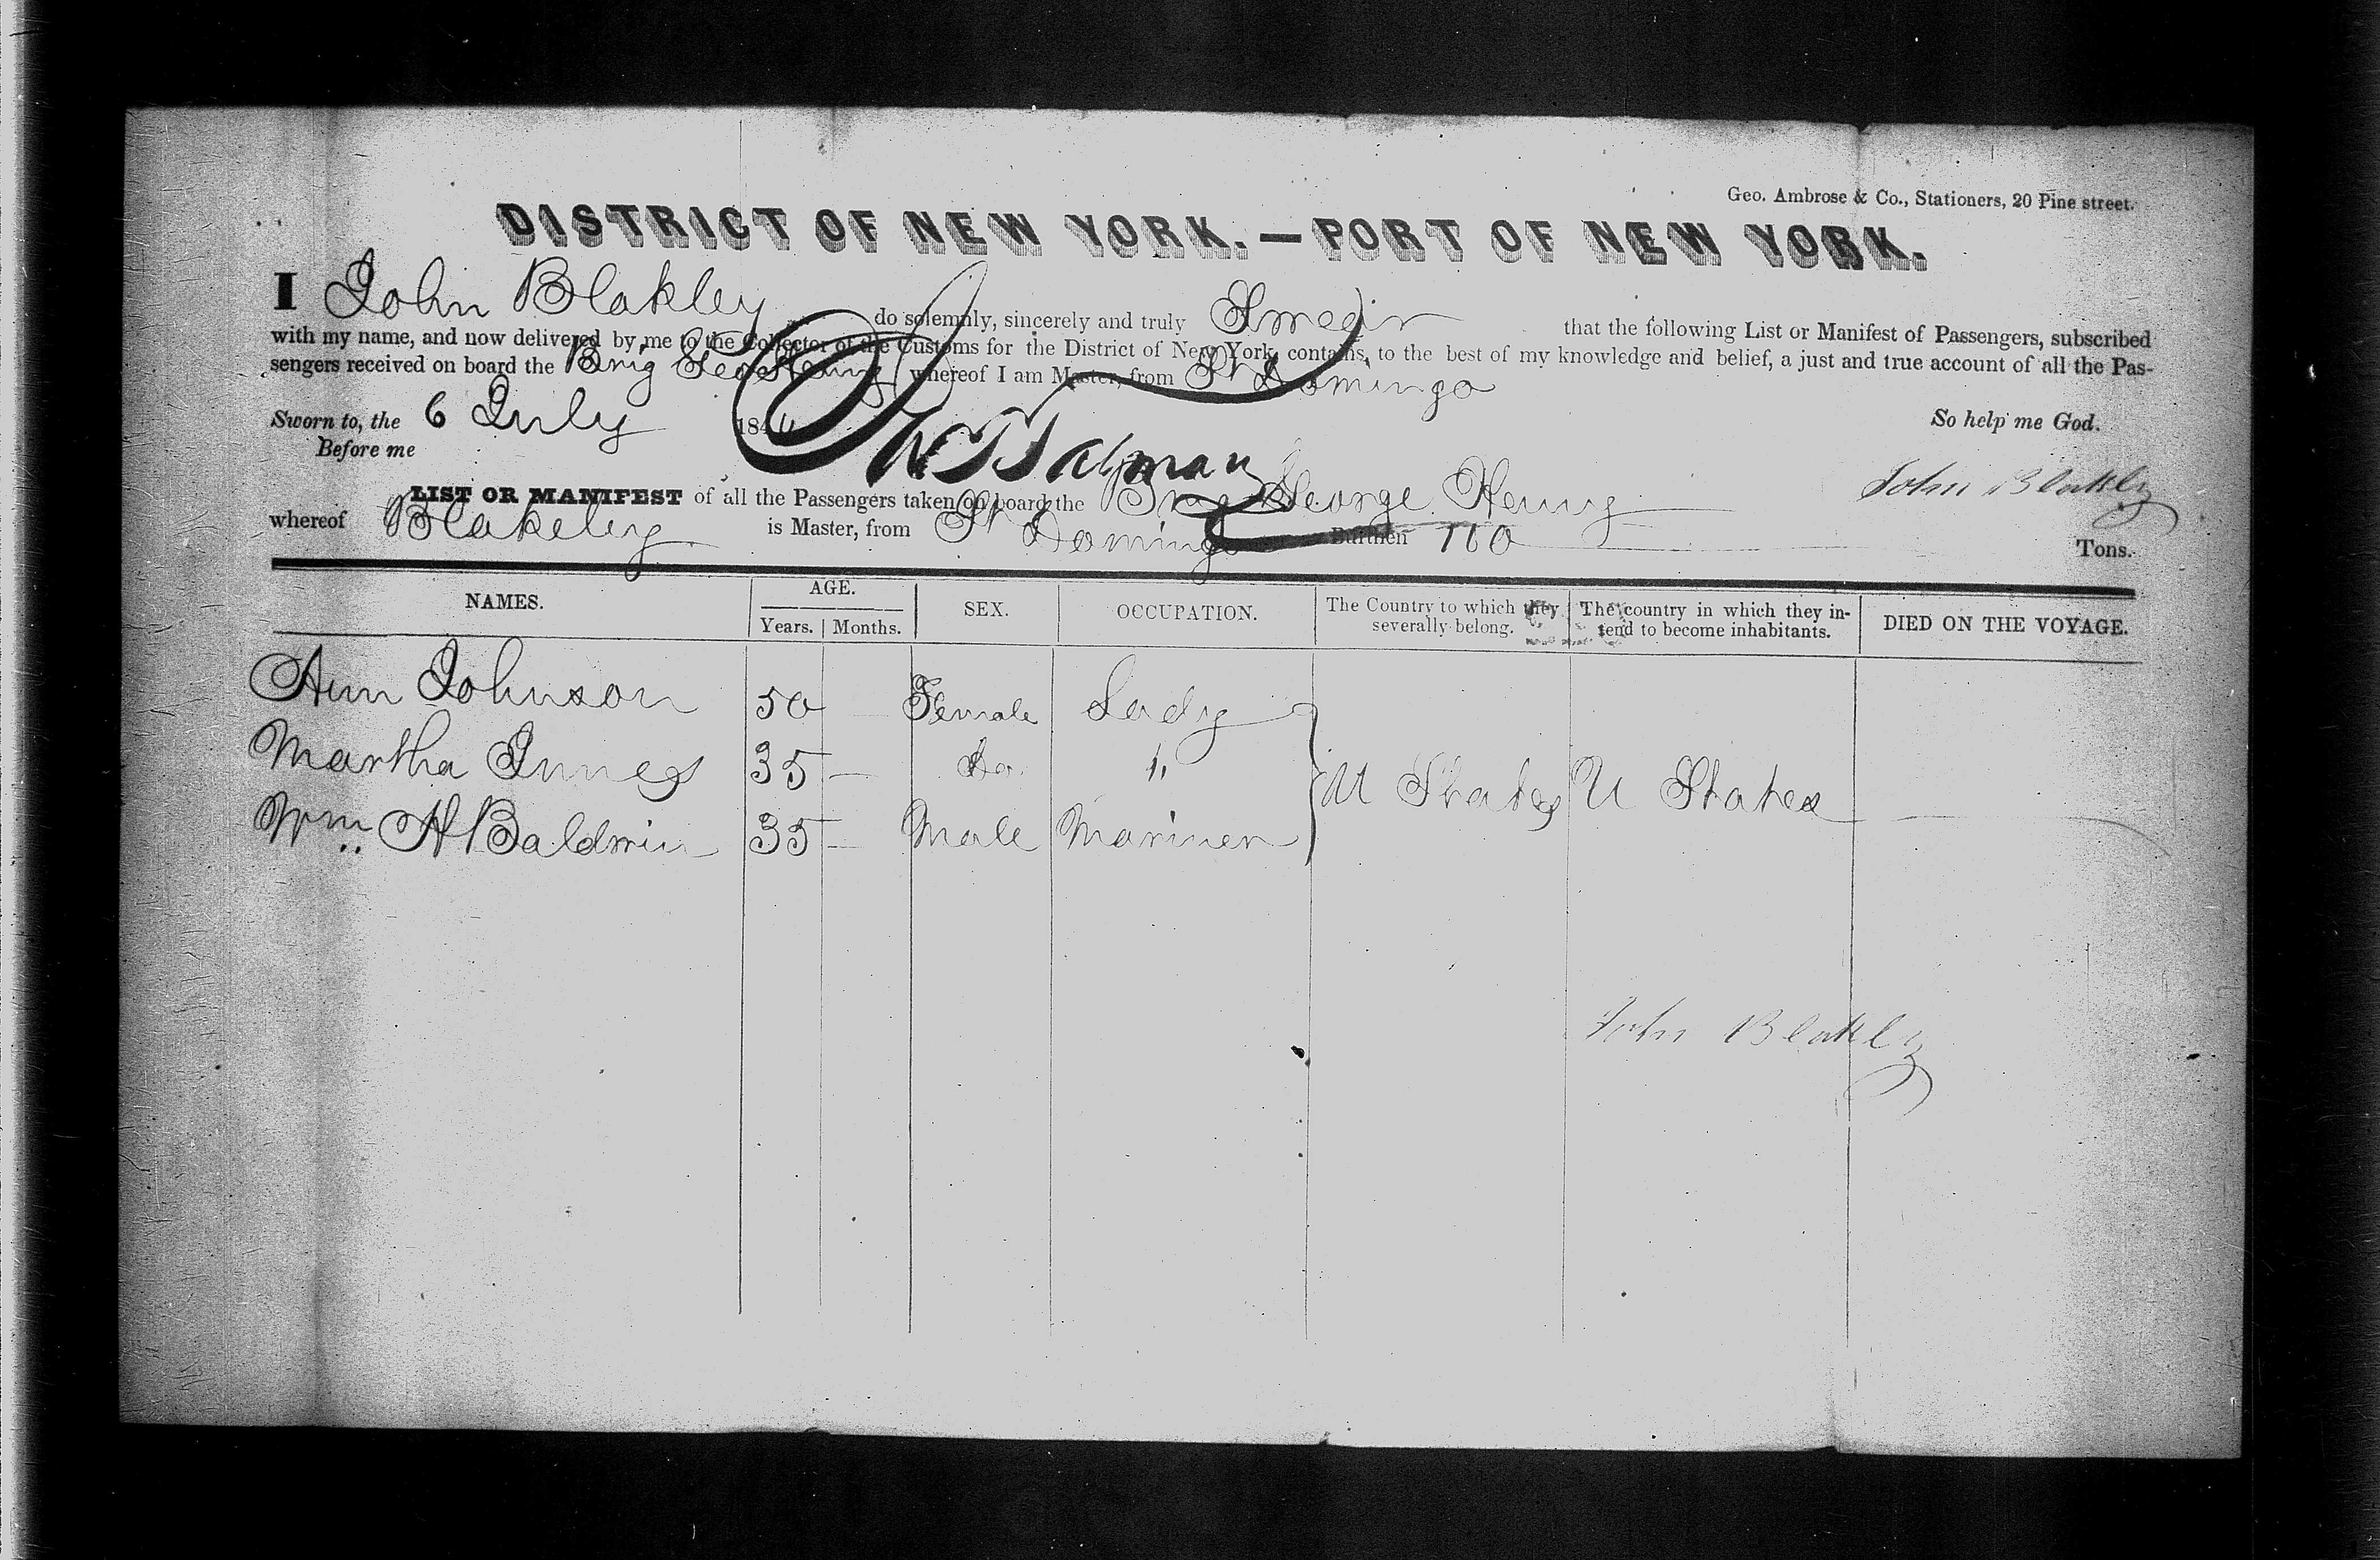 Geo. Ambrose & Co., Stationers, 20 Pine street.
DISTRICT OF NEW YORK.—PORT OF NEW YORK.
I John Blakley do solemnly, sincerely and truly Swear that the following List or Manifest of Passengers, subscribed
with my name, and now delivered by me to the Collector of the Customs for the District of New York, contains, to the best of my knowledge and belief, a just and true account of all the Pas-
sengers received on board the Brig Geo Henry whereof I am Master, from St Domingo
Sworn to, the 6 July 184 So help me God.
Before me
John Blakley
LIST OR MANIFEST of all the Passengers taken on board the Brig George Henry
whereof Blakeley is Master, from St Domingo Burthen 160 Tons.
NAMES. AGE. SEX. OCCUPATION. The Country to which they severally belong. The country in which they in- tend to become inhabitants. DIED ON THE VOYAGE.
Years. Months.
Ann Johnson 50 Female Lady
Martha Innes 35 — Do. "
U States U States
Wm H Baldwin 35 — Male Mariner
John Blakley